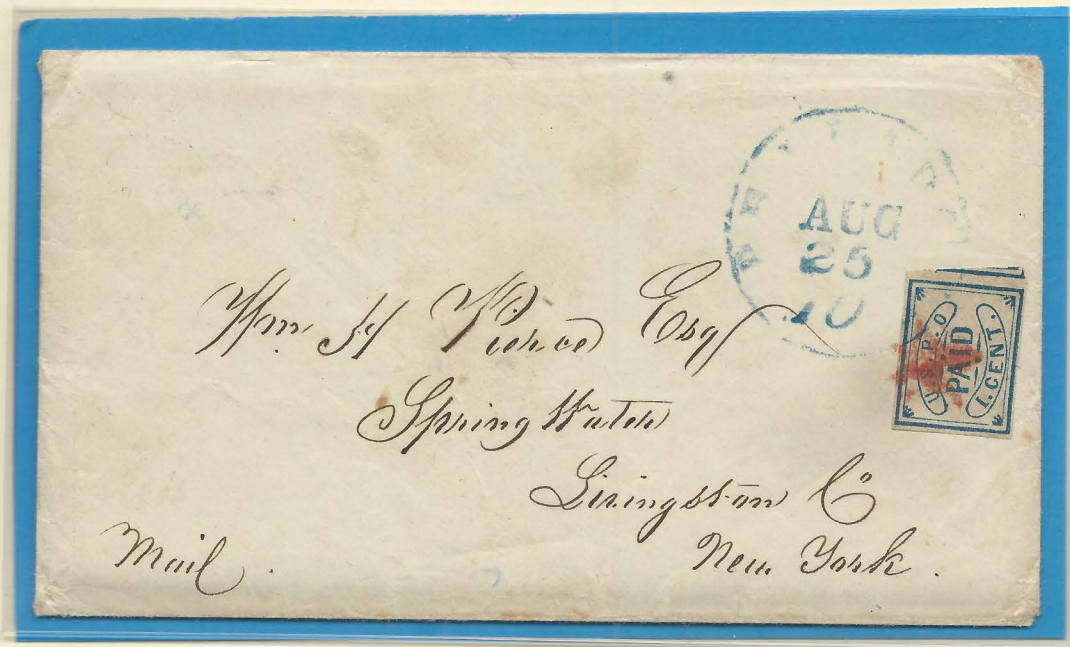 AUG
25
10
U.S.P.O
PAID
1.CENT.
Wm H Pierce Esq
Spring Water
Livingston Co
New York.
Mail.